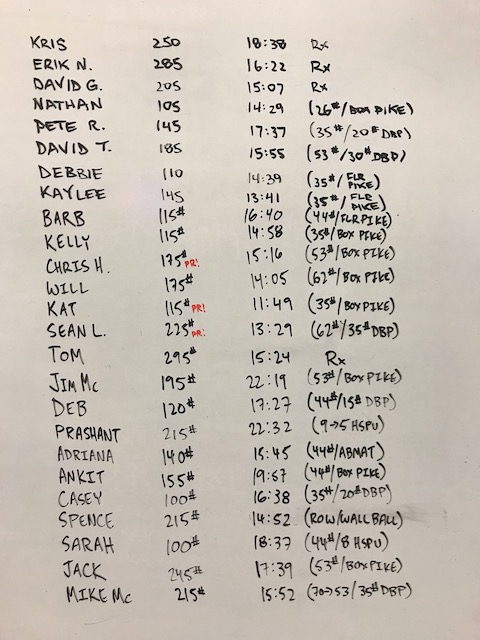 KRIS 250 18:38 Rx
ERIK N. 285 16:22 Rx
DAVID G. 205 15:07 Rx
NATHAN 105 14:29 (26#/BOX PIKE)
PETE R. 145 17:37 (35#/20# DBP)
DAVID T. 185 15:55 (53#/30# DBP)
DEBBIE 110 14:39 (35#/FLR PIKE)
KAYLEE 145 13:41 (35#/FLR PIKE)
BARB 115# 16:40 (44#/FLR PIKE)
KELLY 115# 14:58 (35#/BOX PIKE)
CHRIS H. 175# PR! 15:16 (53#/BOX PIKE)
WILL 175# 14:05 (62#/BOX PIKE)
KAT 115# PR! 11:49 (35#/BOX PIKE)
SEAN L. 225# PR! 13:29 (62#/35# DBP)
TOM 295# 15:24 Rx
JIM Mc 195# 22:19 (53#/BOX PIKE)
DEB 120# 17:27 (44#/15# DBP)
PRASHANT 215# 22:32 (9→5 HSPU)
ADRIANA 140# 15:45 (44#/ABMAT)
ANKIT 155# 19:57 (44#/BOX PIKE)
CASEY 100# 16:38 (35#/20# DBP)
SPENCE 215# 14:52 (ROW/WALL BALL)
SARAH 100# 18:37 (44#/8 HSPU)
JACK 245# 17:39 (53#/BOX PIKE)
MIKE Mc 215# 15:52 (70→53/35# DBP)